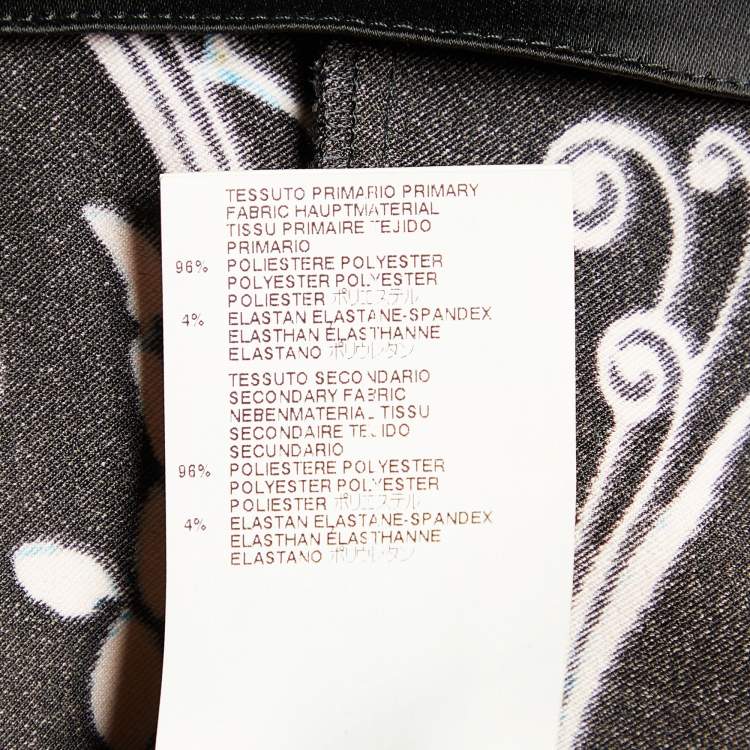 TESSUTO PRIMARIO PRIMARY
FABRIC HAUPTMATERIAL
TISSU PRIMAIRE TEJIDO
PRIMARIO
96% POLIESTERE POLYESTER
POLYESTER POLYESTER
POLIESTER ポリエステル
4% ELASTAN ELASTANE-SPANDEX
ELASTHAN ÉLASTHANNE
ELASTANO ポリウレタン
TESSUTO SECONDARIO
SECONDARY FABRIC
NEBENMATERIAL TISSU
SECONDAIRE TEJIDO
SECUNDARIO
96% POLIESTERE POLYESTER
POLYESTER POLYESTER
POLIESTER ポリエステル
4% ELASTAN ELASTANE-SPANDEX
ELASTHAN ÉLASTHANNE
ELASTANO ポリウレタン